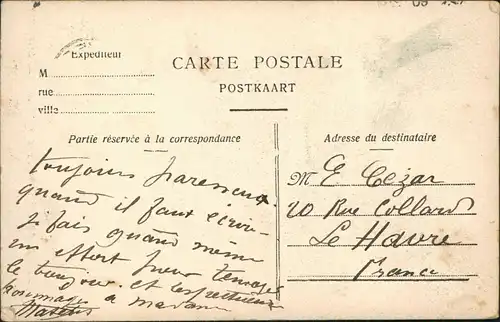 Expéditeur
M
rue
ville
CARTE POSTALE
POSTKAART
Partie réservée à la correspondance
Adresse du destinataire
toujours paresseux
quand il faut écrire
je fais quand même
un effort pour
le bonjour et respectueux
hommages à madame
M E Cezar
20 Rue Collard
Le Havre
France